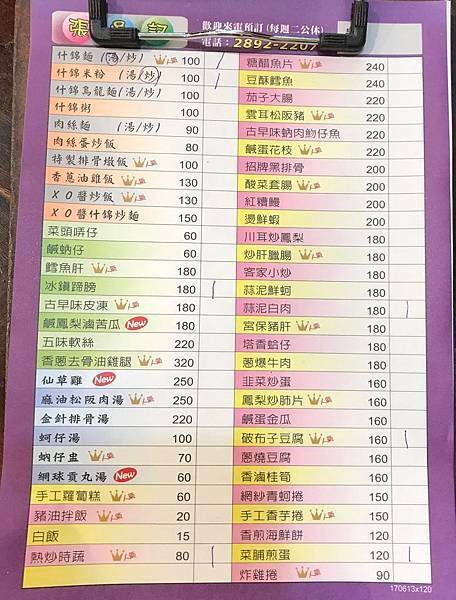 張品記
歡迎來電預訂(每週二公休)
電話：2892-2207
什錦麵(湯/炒) 人氣 100
什錦米粉 (湯/炒) 100
什錦烏龍麵(湯/炒) 100
什錦粥 100
肉絲麵 (湯/炒) 90
肉絲蛋炒飯 80
特製排骨燉飯 人氣 100
香蔥油雞飯 人氣 130
XO醬炒飯 人氣 130
XO醬什錦炒麵 150
菜頭哖仔 60
鹹蚋仔 60
鱈魚肝 人氣 180
冰鎮蹄膀 180
古早味皮凍 人氣 180
鹹鳳梨滷苦瓜 New 180
五味軟絲 220
香蔥去骨油雞腿 人氣 320
仙草雞 New 250
麻油松阪肉湯 人氣 250
金針排骨湯 220
蚵仔湯 100
蚋仔㿻 人氣 70
網球貢丸湯 New 60
手工蘿蔔糕 人氣 60
豬油拌飯 人氣 20
白飯 15
熱炒時蔬 人氣 80
糖醋魚片 人氣 240
豆酥鱈魚 240
茄子大腸 220
雲耳松阪豬 人氣 220
古早味蚋肉魩仔魚 220
鹹蛋花枝 人氣 220
招牌黑排骨 200
酸菜套腸 人氣 200
紅糟鰻 200
燙鮮蝦 200
川耳炒鳳梨 180
炒肝腱腸 人氣 180
客家小炒 180
蒜泥鮮蚵 180
蒜泥白肉 180
宮保豬肝 人氣 180
塔香蛤仔 180
蔥爆牛肉 180
韭菜炒蛋 160
鳳梨炒肺片 人氣 160
鹹蛋金瓜 160
破布子豆腐 人氣 160
蔥燒豆腐 160
香滷桂筍 160
網紗青蚵捲 150
手工香芋捲 人氣 150
香煎海鮮餅 120
菜脯煎蛋 人氣 120
炸雞捲 人氣 90
170613x120